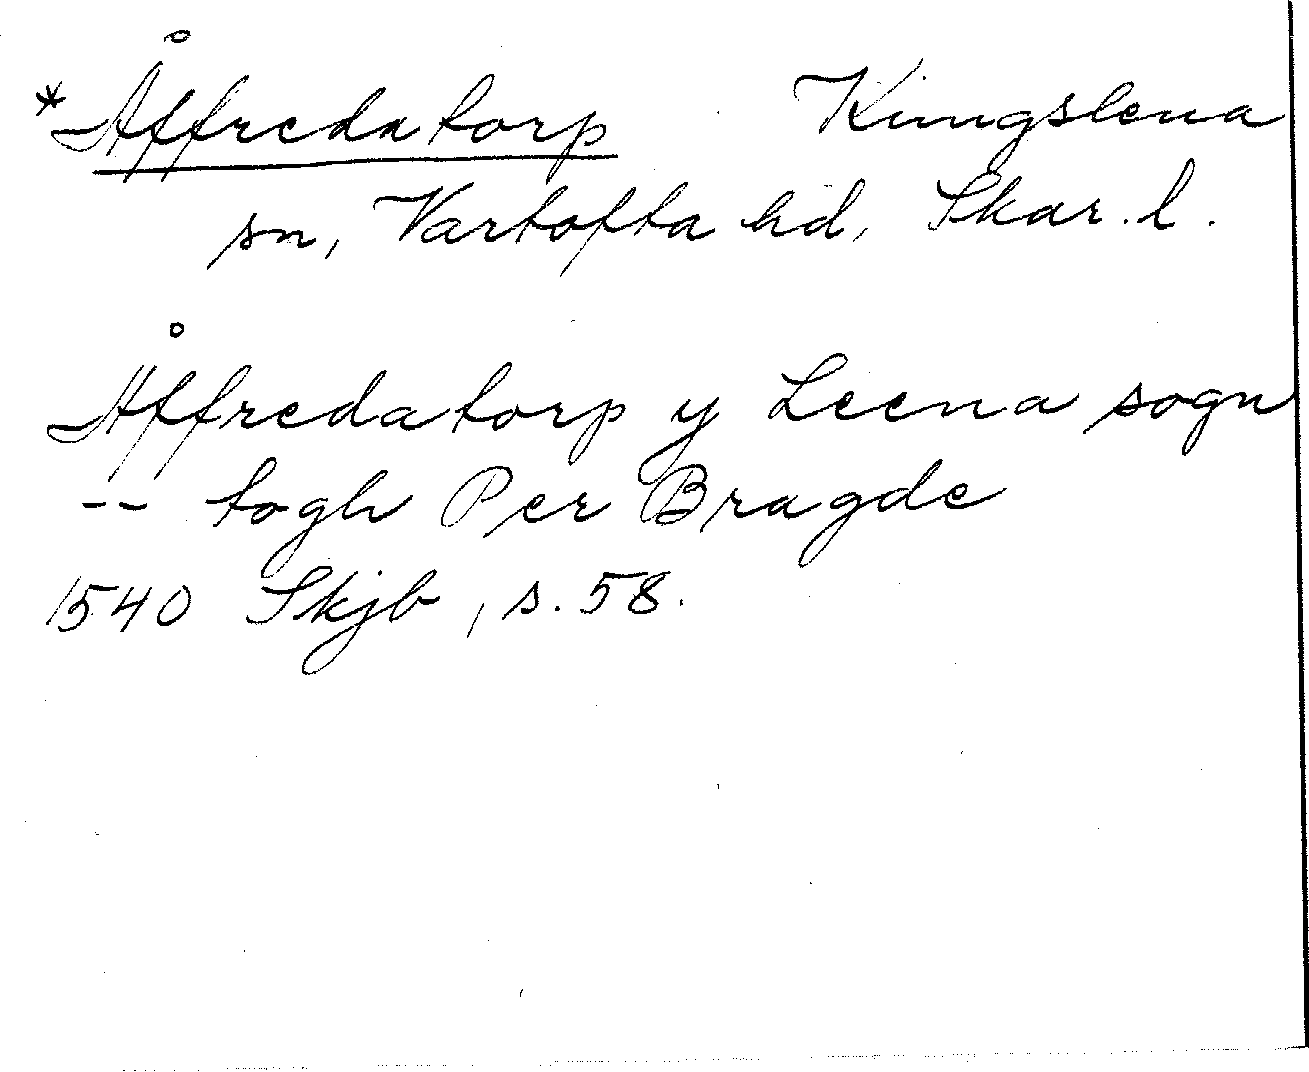 *Åffredatorp Kungslena
sn, Vartofta hd, Skar. l.
Åffredatorp y Leena sogn
-- togh Per Bragde
1540 Skjb, s. 58.